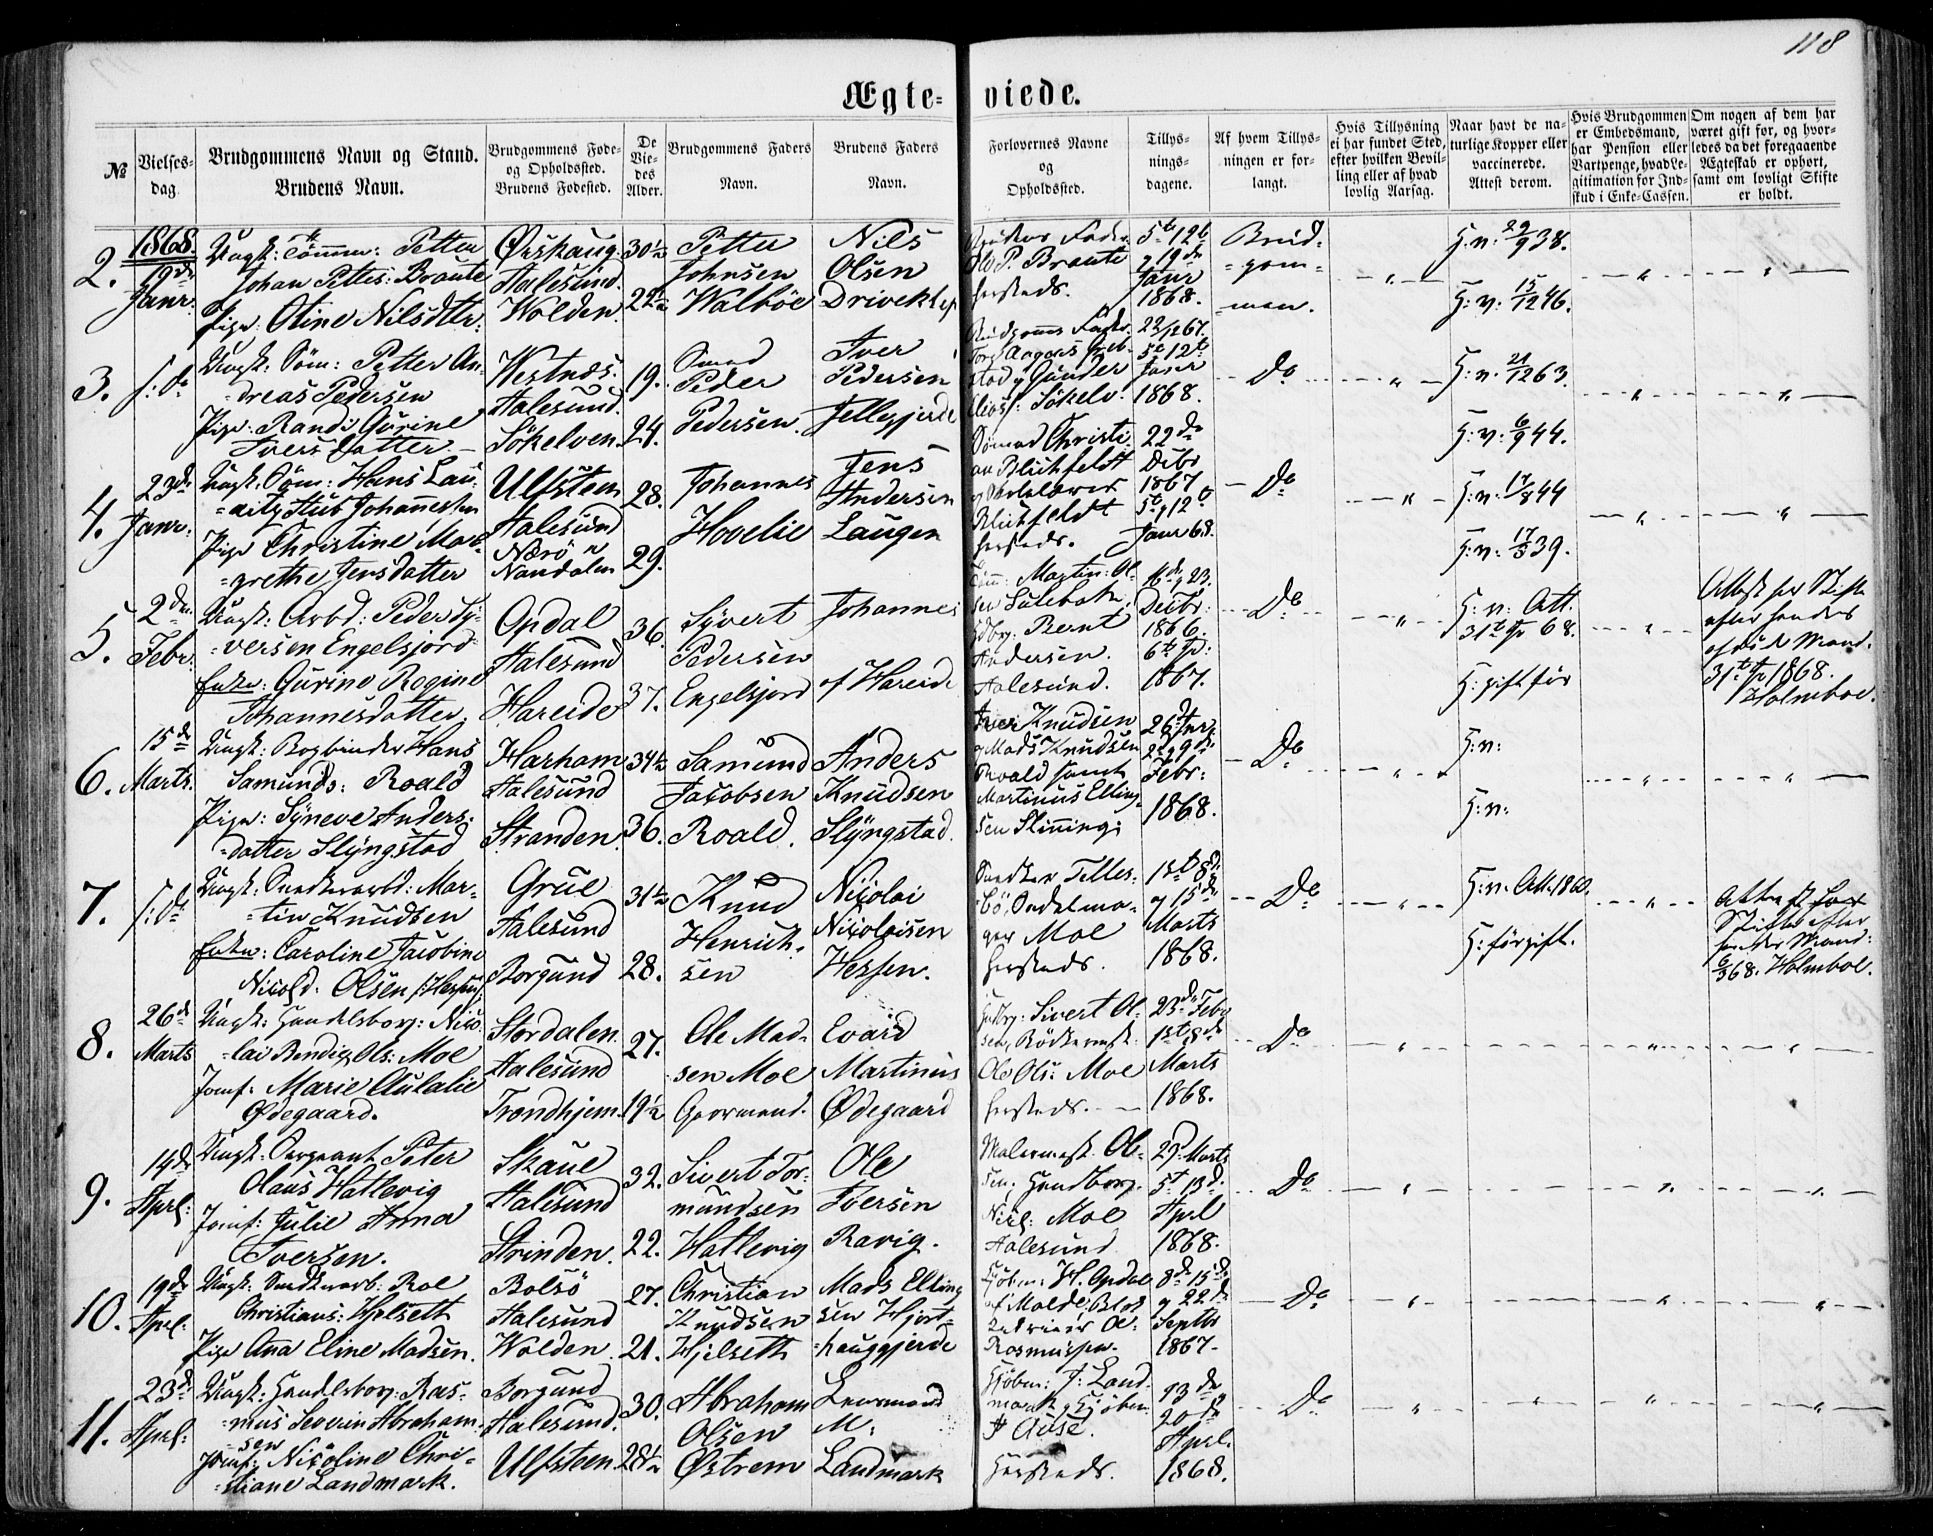 118
Ægte-viede.
№
Vielses-dag.
Brudgommens Navn og Stand.
Brudens Navn.
Brudgommens Føde- og Opholdssted.
Brudens Fødested.
De Vie-des Alder.
Brudgommens Faders Navn.
Brudens Faders Navn.
Forlovernes Navne og Opholdssted.
Tillys-nings-dagene.
Af hvem Tillys-ningen er for-langt.
Hvis Tillysning ei har fundet Sted, efter hvilken Bevil-ling eller af hvad lovlig Aarsag.
Naar havt de na-turlige Kopper eller vaccinerede. Attest derom.
Hvis Brudgommen er Embedsmand, har Pension eller Vartpenge, hvad Le-gitimation for Ind-skud i Enke-Cassen.
Om nogen af dem har været gift før, og hvor-ledes da det foregaaende Ægteskab er ophørt, samt om lovligt Skifte er holdt.
1868.
2.
19de Janr:
Ungk: Tømm: Petter
Johan Petters: Braute
Pige: Oline Nilsdtr.
Ørskaug
Aalesund.
Wolden.
30½
22½
Petter
Johnsen
Walbøe
Nils
Olsen
Driveklep
Ole P. Braute
hersteds.
5te 12te
19de
Janr
1868.
Brud-
=gom=
=men.
H: v: 29/9 38.
H: v: 15/12 46.
3.
s: D.
Ungk. Søm: Petter An-
=dreas Pedersen
Pige: Randi Gurine
Ivers Datter.
Westnæs.
Aalesund.
Sökelven.
19.
24.
Smed
Peder
Pedersen.
Iver
Pedersen
Jellegjerde
22/12 67.
5te 12te
Janr
1868.
Do
H: v: 21/12 63.
H: v: 6/9 44.
4.
23de Janr:
Ungk. Søm: Hans Lau-
=ritz Stub Johannessen
Pige Christine Mar-
=grethe Jensdatter
Ulfsteen
Aalesund
Nærö
Namdalen
28.
29.
Johannes
Hovelie
Jens
Andersen
Laugen
Sømand Christi-
an Blichfeldt
Blichfeldt
hersteds.
22de
Decbr
1867
5te, 12te
Janr 68.
Do
H: v: 17/8 44
H: v: 17/5 39.
5.
2den Febr.
Ungk: Arbd: Peder Sy-
=versen Engelsjord
Enke: Gurine Rogine
Johannesdatter.
Opdal
Aalesund
Hareide
36.
37.
Syvert
Pedersen
Engelsjord
Johannes
af Hareide
Martin: Ol-
sen
Bernt
Andersen.
Aalesund.
16de, 23.
Decbr:
1866.
1867.
Do
H: v: Att.
68.
H: gift før
Attest for Skifte
efter hendes
afdøde Mand.
1868.
Holmboe.
6.
15de Marts.
Ungk: Bogbinder Hans
Samunds: Roald
Pige: Syneve Anders-
=datter Slyngstad
Harham
Aalesund
Stranden.
34½
36.
Samund
Jacobsen
Roald.
Anders
Knudsen
Slyngstad.
Iver Knudsen
Mads Knudsen
Roald samt
Martinus Elling-
sen
26de Janr:
2den 9de
Febr:
1868.
Do
H: v:
H: v:
7.
s: D.
Ungk: Snedkerarbd: Mar-
=tin Knudsen
Enke: Caroline Jacobine
Nicolsd: Olsen f. Hessen
Grue
Aalesund
Borgund
31½
28.
Knud
Henrik-
sen
Nicolai
Nicolaisen
Hessen.
Snedker Telles-
bö, Sadelma-
ger Moe
hersteds.
1ste 8de
og 15de
Marts
1868.
Do
H: v. Att. 1860.
H: før gift.
Attest for
Skifte efter
hendes Mand:
6/3 68. Holmboe.
8.
26de Marts
Ungk: Handelsborg: Nico-
=lai Bendix Ols: Moe
Jomf: Marie Aulalie
Ødegaard.
Stordalen
Aalesund
Trondhjem.
27.
19½
Ole Mad-
sen Moe
Evard
Martinus
Ødegaard
Sivert Ol-
sen, Bödkermest:
Ole Ols: Moe
hersteds.
23de Febr
1ste, 8de
Marts
1868.
Do
9.
14de Aprl:
Ungk. Sergeant Peter
Olaus Hatlevig
Jomf: Julie Anna
Iversen.
Skaue
Aalesund
Strinden.
32.
22.
Sivert Tor-
mundsen
Hatlevig
Ole
Iversen
Ravig.
Malermest. Ol-
sen, Handborg.
Nicl: Moe
Aalesund
29. Marts
5te, 13de
Aprl
1868.
Do
10.
19de Aprl:
Ungk: Snedkerarb: Roe
Christians: Hjelsett
Pige Ana Eline Madsen.
Bolsö
Aalesund
Wolden.
27.
21.
Christian
Knudsen
Hjelseth
Mads Elling-
sen Hjort-
=hauggjerde
Kjøbm: H. Opdal
af Molde,
Rasmussen.
8de 15de
og 22de
Septbr
1867.
Do
11.
23de Aprl:
Ungk: Handelsborg: Ras-
=mus Severin Abraham-
=sen
Jomf: Nicoline Chri-
=stiane Landmark.
Borgund
Aalesund.
Ulfsteen.
30.
28½
Abraham
Olsen
Østrem
Leermand
M.
Landmark
Kjøbm: J: Land-
mark, Kjøbm.
P Ause.
Hersteds.
13de
20de
Aprl.
1868.
Do